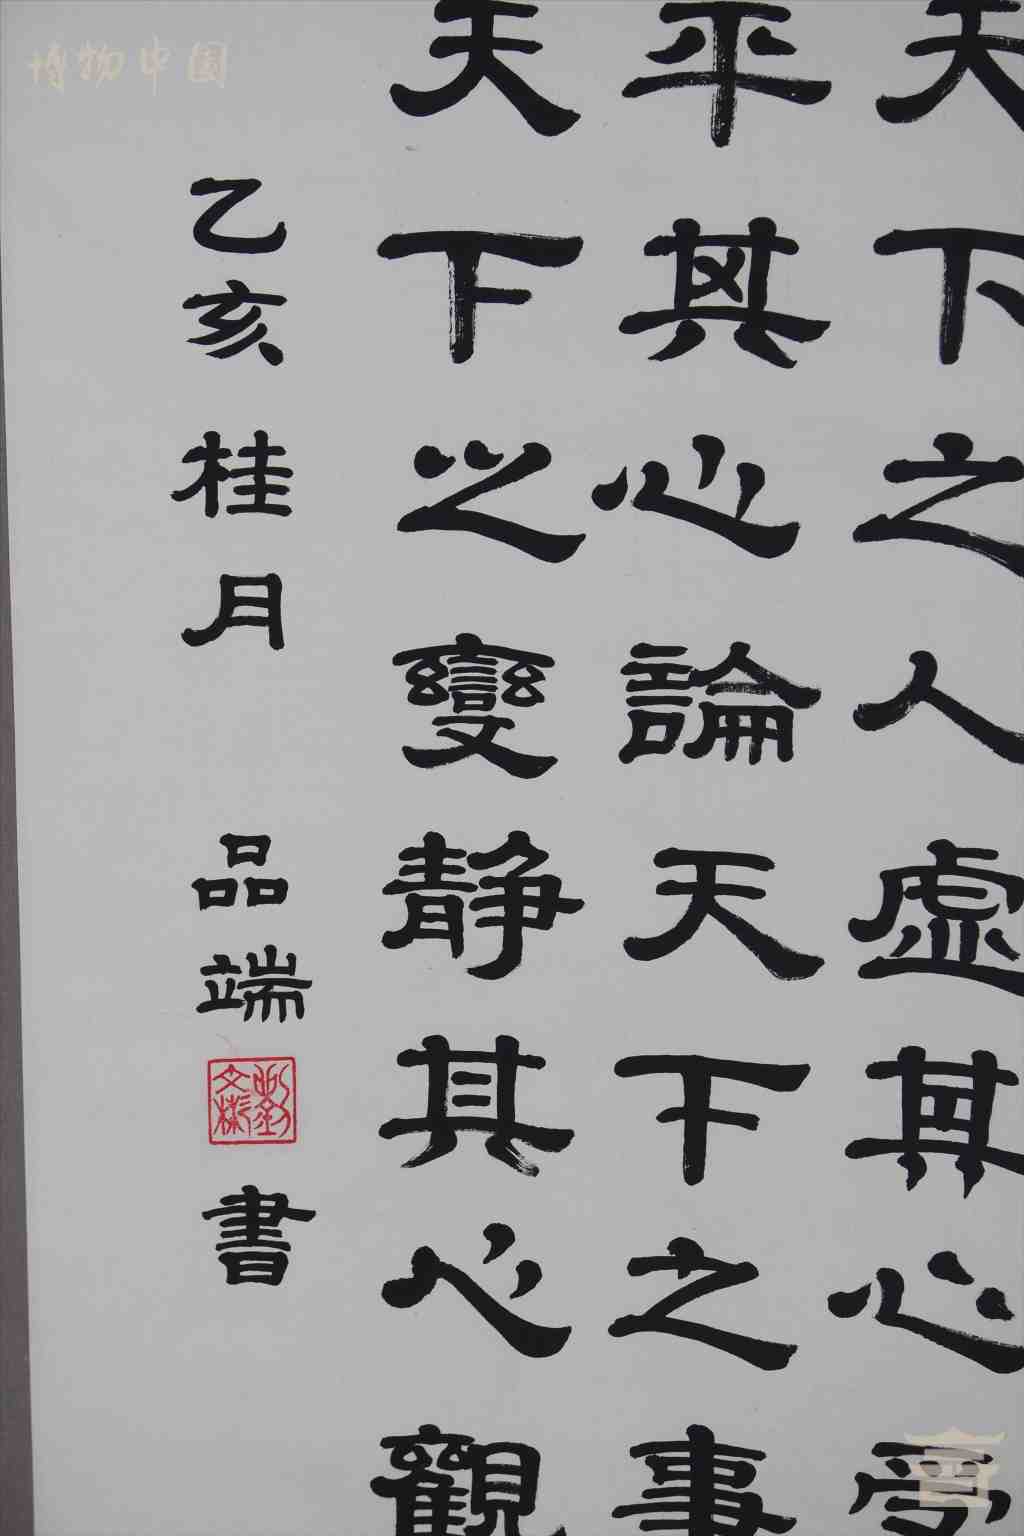 天下之人虛其心受
平其心論天下之事
天下之變靜其心觀
乙亥桂月 品端書
劉文彬
博物中国